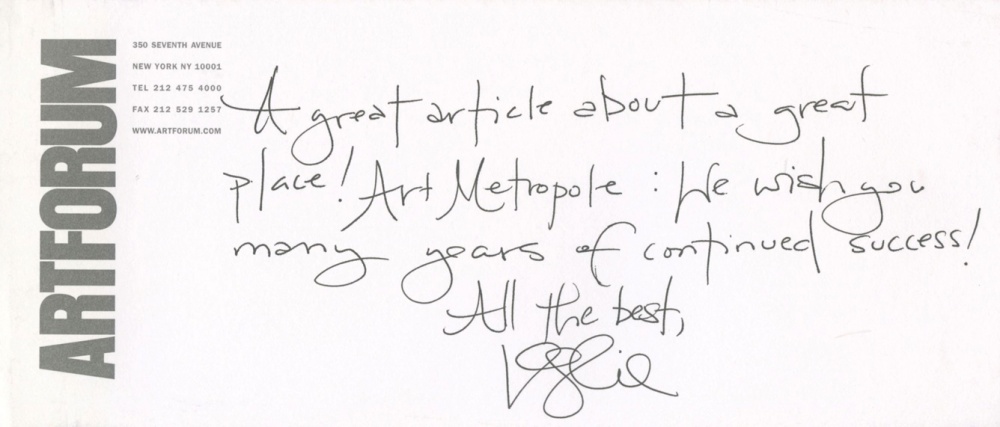 ARTFORUM
350 SEVENTH AVENUE
NEW YORK NY 10001
TEL 212 475 4000
FAX 212 529 1257
WWW.ARTFORUM.COM
A great article about a great
place! Art Metropole : We wish you
many years of continued success!
All the best,